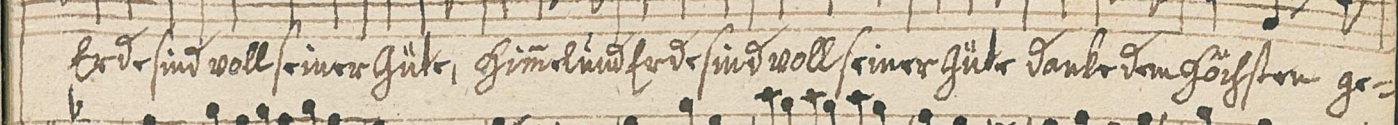 Erde sind voll seiner Güte, Him̅el und Erde sind voll seiner Güte danke dem Höchsten ge=